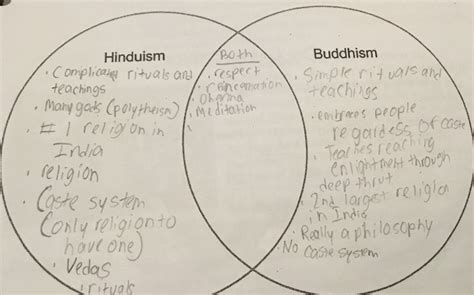 Hinduism
· Complicated rituals and
teachings
· Many gods (polytheism)
· #1 religion in
India
· religion
· Caste system
(only religion to
have one)
· Vedas
· rituals
Both
· respect
· reincarnation
· Dharma
· Meditation
Buddhism
· Simple rituals and
teachings
· embraces people
regardless of caste
· Teaches reaching
enlightment through
deep
· 2nd largest religion
in India
· Really a philosophy
· No caste system